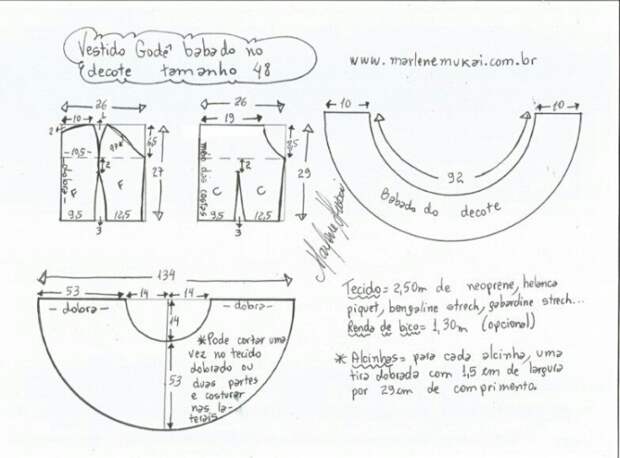 Vestido Godê babado no
decote tamanho 48
www.marlenemukai.com.br
26
10
2
10,5
97
2
6,5
27
dobra
F
F
9,5
12,5
3
26
19
meio das costas
8,5
2
29
C
C
9,5
12,5
3
10
10
92
Babado do decote
Marlene Mukai
134
53
14
14
- dobra -
- dobra -
14
53
*Pode cortar uma
vez no tecido
dobrado ou
duas partes
e costurar
nas la-
terais
Tecido = 2,50m de neoprene, helanca
piquet, bengaline strech, gabardine strech...
Renda de bico = 1,30m (opcional)
* Alcinhas = para cada alcinha, uma
tira dobrada com 1,5 cm de largura
por 29cm de comprimento.